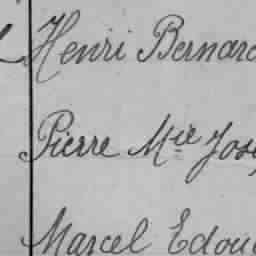 Henri Bernard
Pierre Mie Jos
Marcel Edou